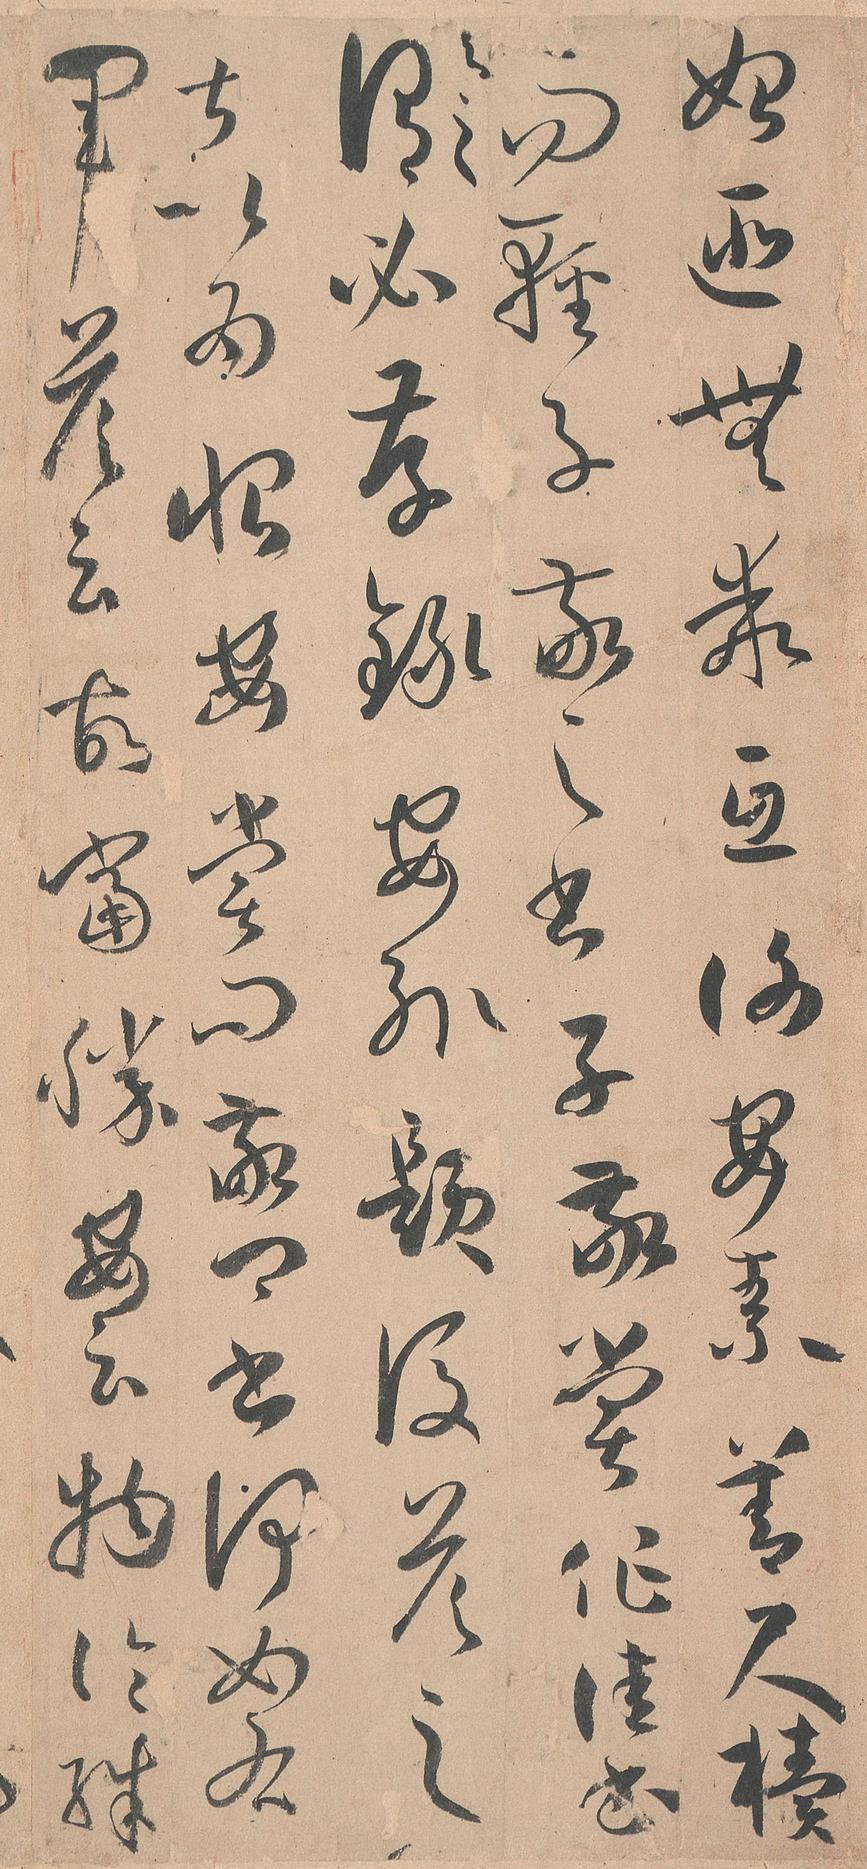 始匪無乖互謝安素善尺牘
而輕子敬之書子敬嘗作佳書
與之謂必存錄安輒題後答之
甚以為恨安嘗問敬卿書何如右
軍答云故當勝安云物論殊